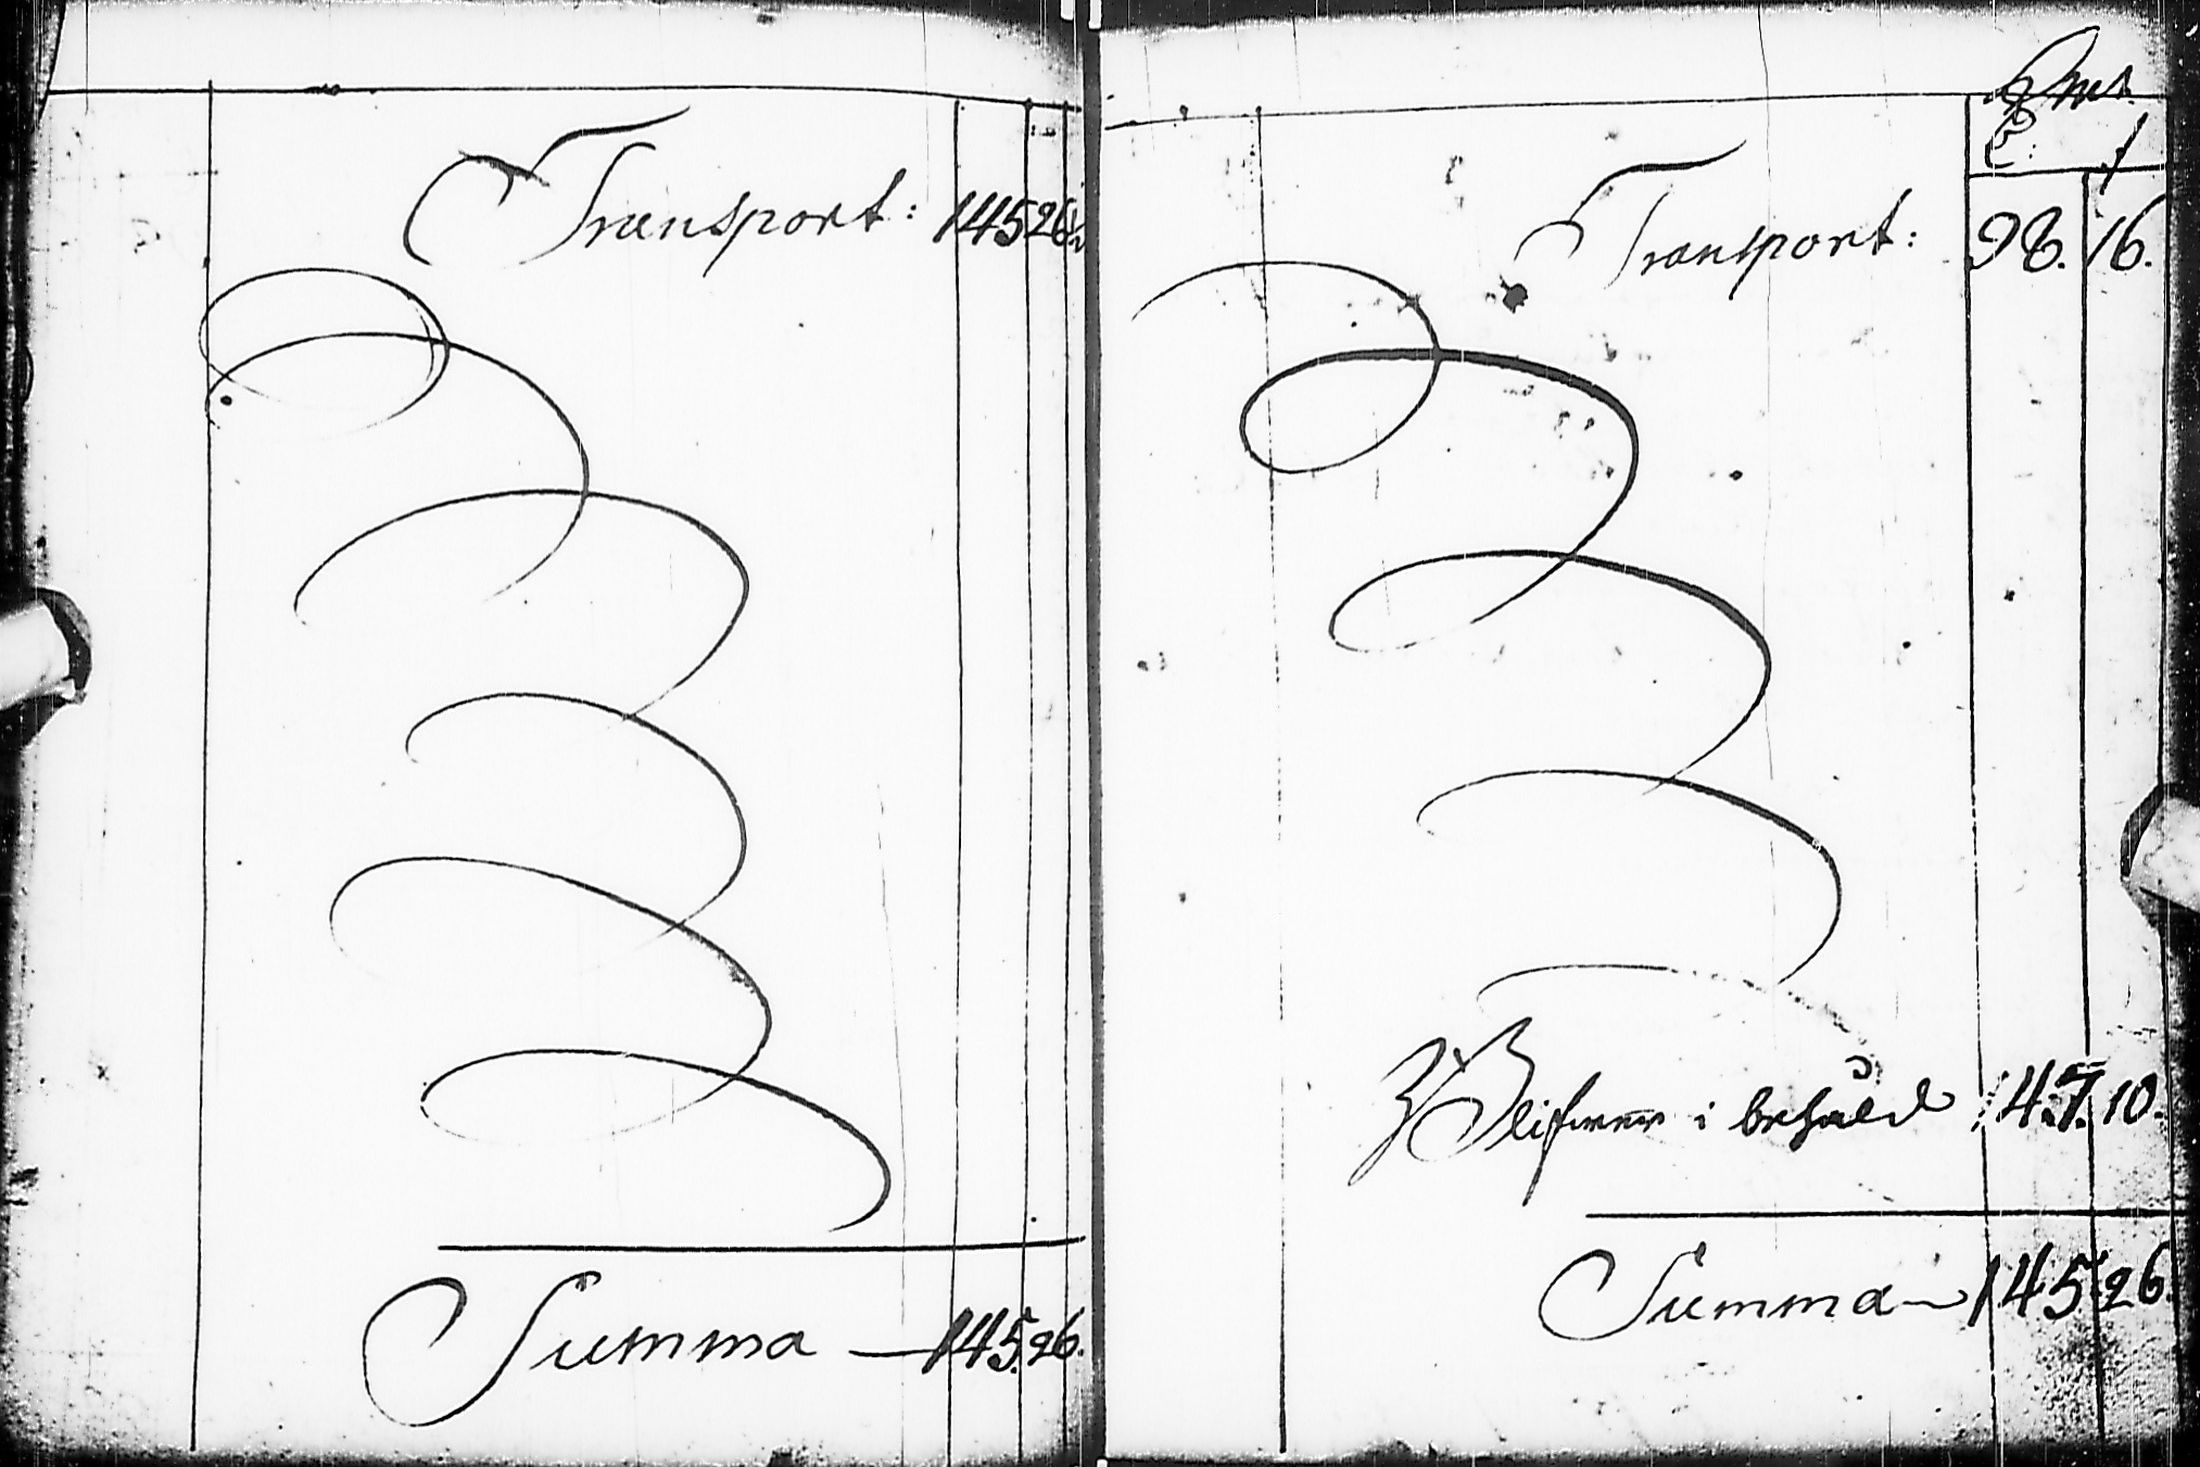 Transport: 145 26
Summa — 145. 26.
Smt.
Transport: 98. 16.
Blifwer i behåld 47. 10.
Summa — 145 26.